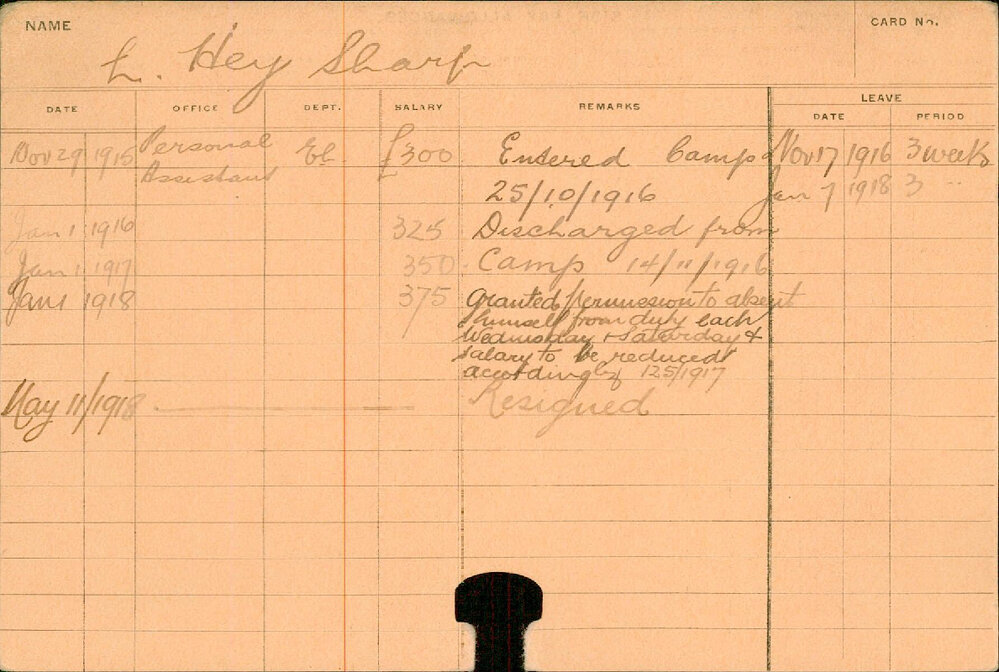 NAME
CARD No.
L. Hey Sharp
DATE OFFICE DEPT. SALARY REMARKS LEAVE
DATE PERIOD
Nov 29 1915 Personal El £300 Entered Camp Nov 17 1916 3 weeks
Assistant 25/10/1916 Jan 7 1918 3 "
Jan 1 1916 325 Discharged from
Jan 1 1917 350 Camp 14/11/1916
Jan 1 1918 375 Granted permission to absent
himself from duty each
Wednesday & Saturday &
salary to be reduced
accordingly 12/5/1917
May 11/1918 Resigned